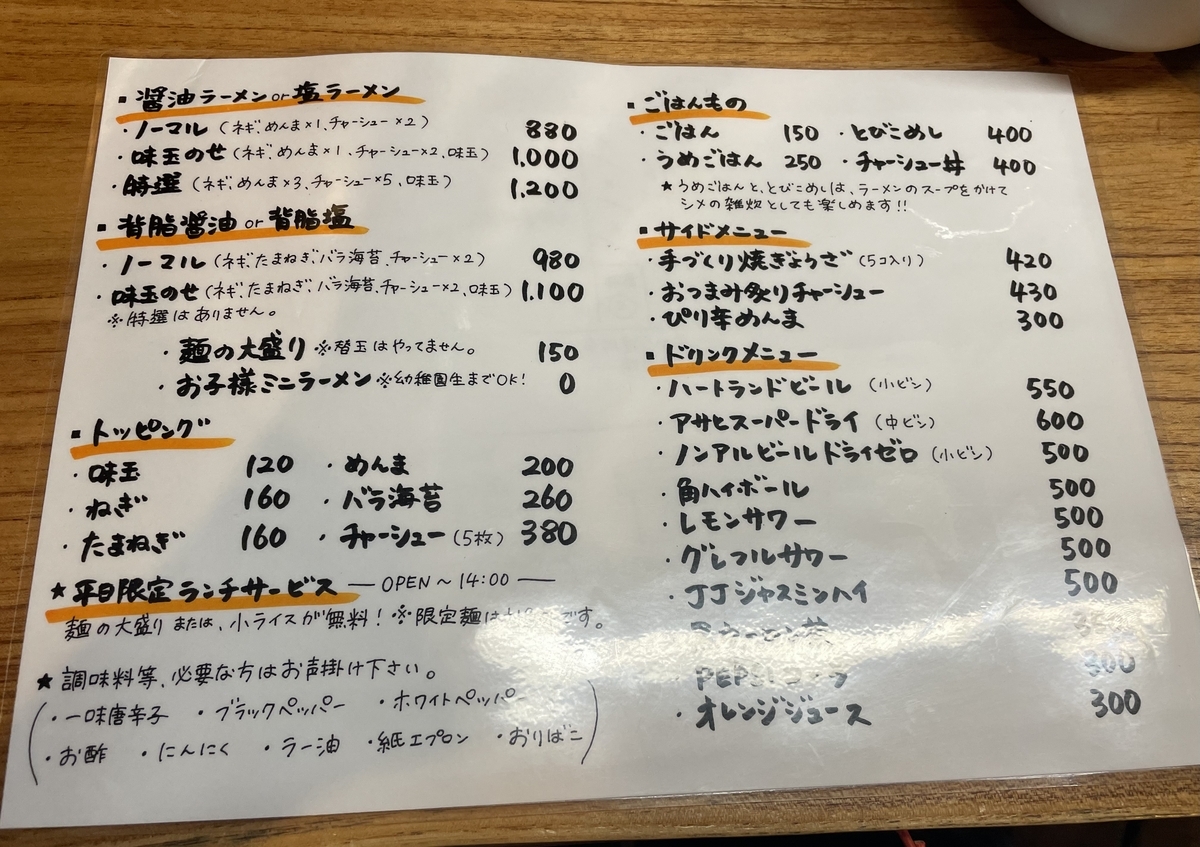 ▪醤油ラーメンor塩ラーメン
・ノーマル（ネギ、めんま×1、チャーシュー×2） 880
・味玉のせ（ネギ、めんま×1、チャーシュー×2、味玉） 1,000
・特選（ネギ、めんま×3、チャーシュー×5、味玉） 1,200
▪背脂醤油or背脂塩
・ノーマル（ネギ、たまねぎ、バラ海苔、チャーシュー×2） 980
・味玉のせ（ネギ、たまねぎ、バラ海苔、チャーシュー×2、味玉） 1,100
※特選はありません。
・麺の大盛り※替玉はやってません。 150
・お子様ミニラーメン※幼稚園生までOK! 0
▪トッピング
・味玉 120 ・めんま 200
・ねぎ 160 ・バラ海苔 260
・たまねぎ 160 ・チャーシュー（5枚） 380
★平日限定ランチサービス ―OPEN～14:00―
麺の大盛りまたは、小ライスが無料！※限定麺は です。
★調味料等、必要な方はお声掛け下さい。
（・一味唐辛子 ・ブラックペッパー ・ホワイトペッパー
・お酢 ・にんにく ・ラー油 ・紙エプロン ・おりばこ）
▪ごはんもの
・ごはん 150 ・とびこめし 400
・うめごはん 250 ・チャーシュー丼 400
★うめごはんと、とびこめしは、ラーメンのスープをかけて
シメの雑炊としても楽しめます!!
▪サイドメニュー
・手づくり焼ぎょうざ（5コ入り） 420
・おつまみ炙りチャーシュー 430
・ぴり辛めんま 300
▪ドリンクメニュー
・ハートランドビール（小ビン） 550
・アサヒスーパードライ（中ビン） 600
・ノンアルビールドライゼロ（小ビン） 500
・角ハイボール 500
・レモンサワー 500
・グレフルサワー 500
・JJジャスミンハイ 500
PEPSI 300
・オレンジジュース 300